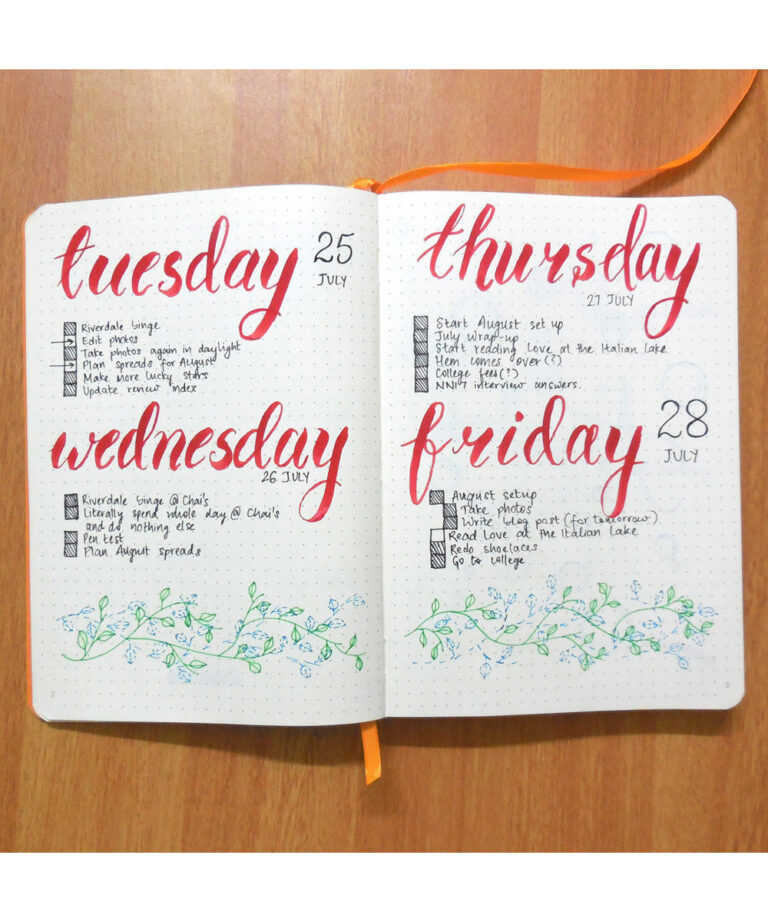 tuesday
25
JULY
Riverdale binge
Edit photos
Take photos again in daylight
Plan spreads for August
Make more lucky stars
Update review index
wednesday
26 JULY
Riverdale binge @ Chai's
Literally spend whole day @ Chai's
and do nothing else
Pen test
Plan August spreads
2
thursday
27 JULY
Start August set up
July wrap-up
Start reading Love at the Italian Lake
Hem comes over (?)
College fees (?)
interview answers.
friday
28
JULY
August setup
Take photos
Write blog post (for tomorrow)
Read Love at the Italian Lake
Redo shoelaces
Go to college
3